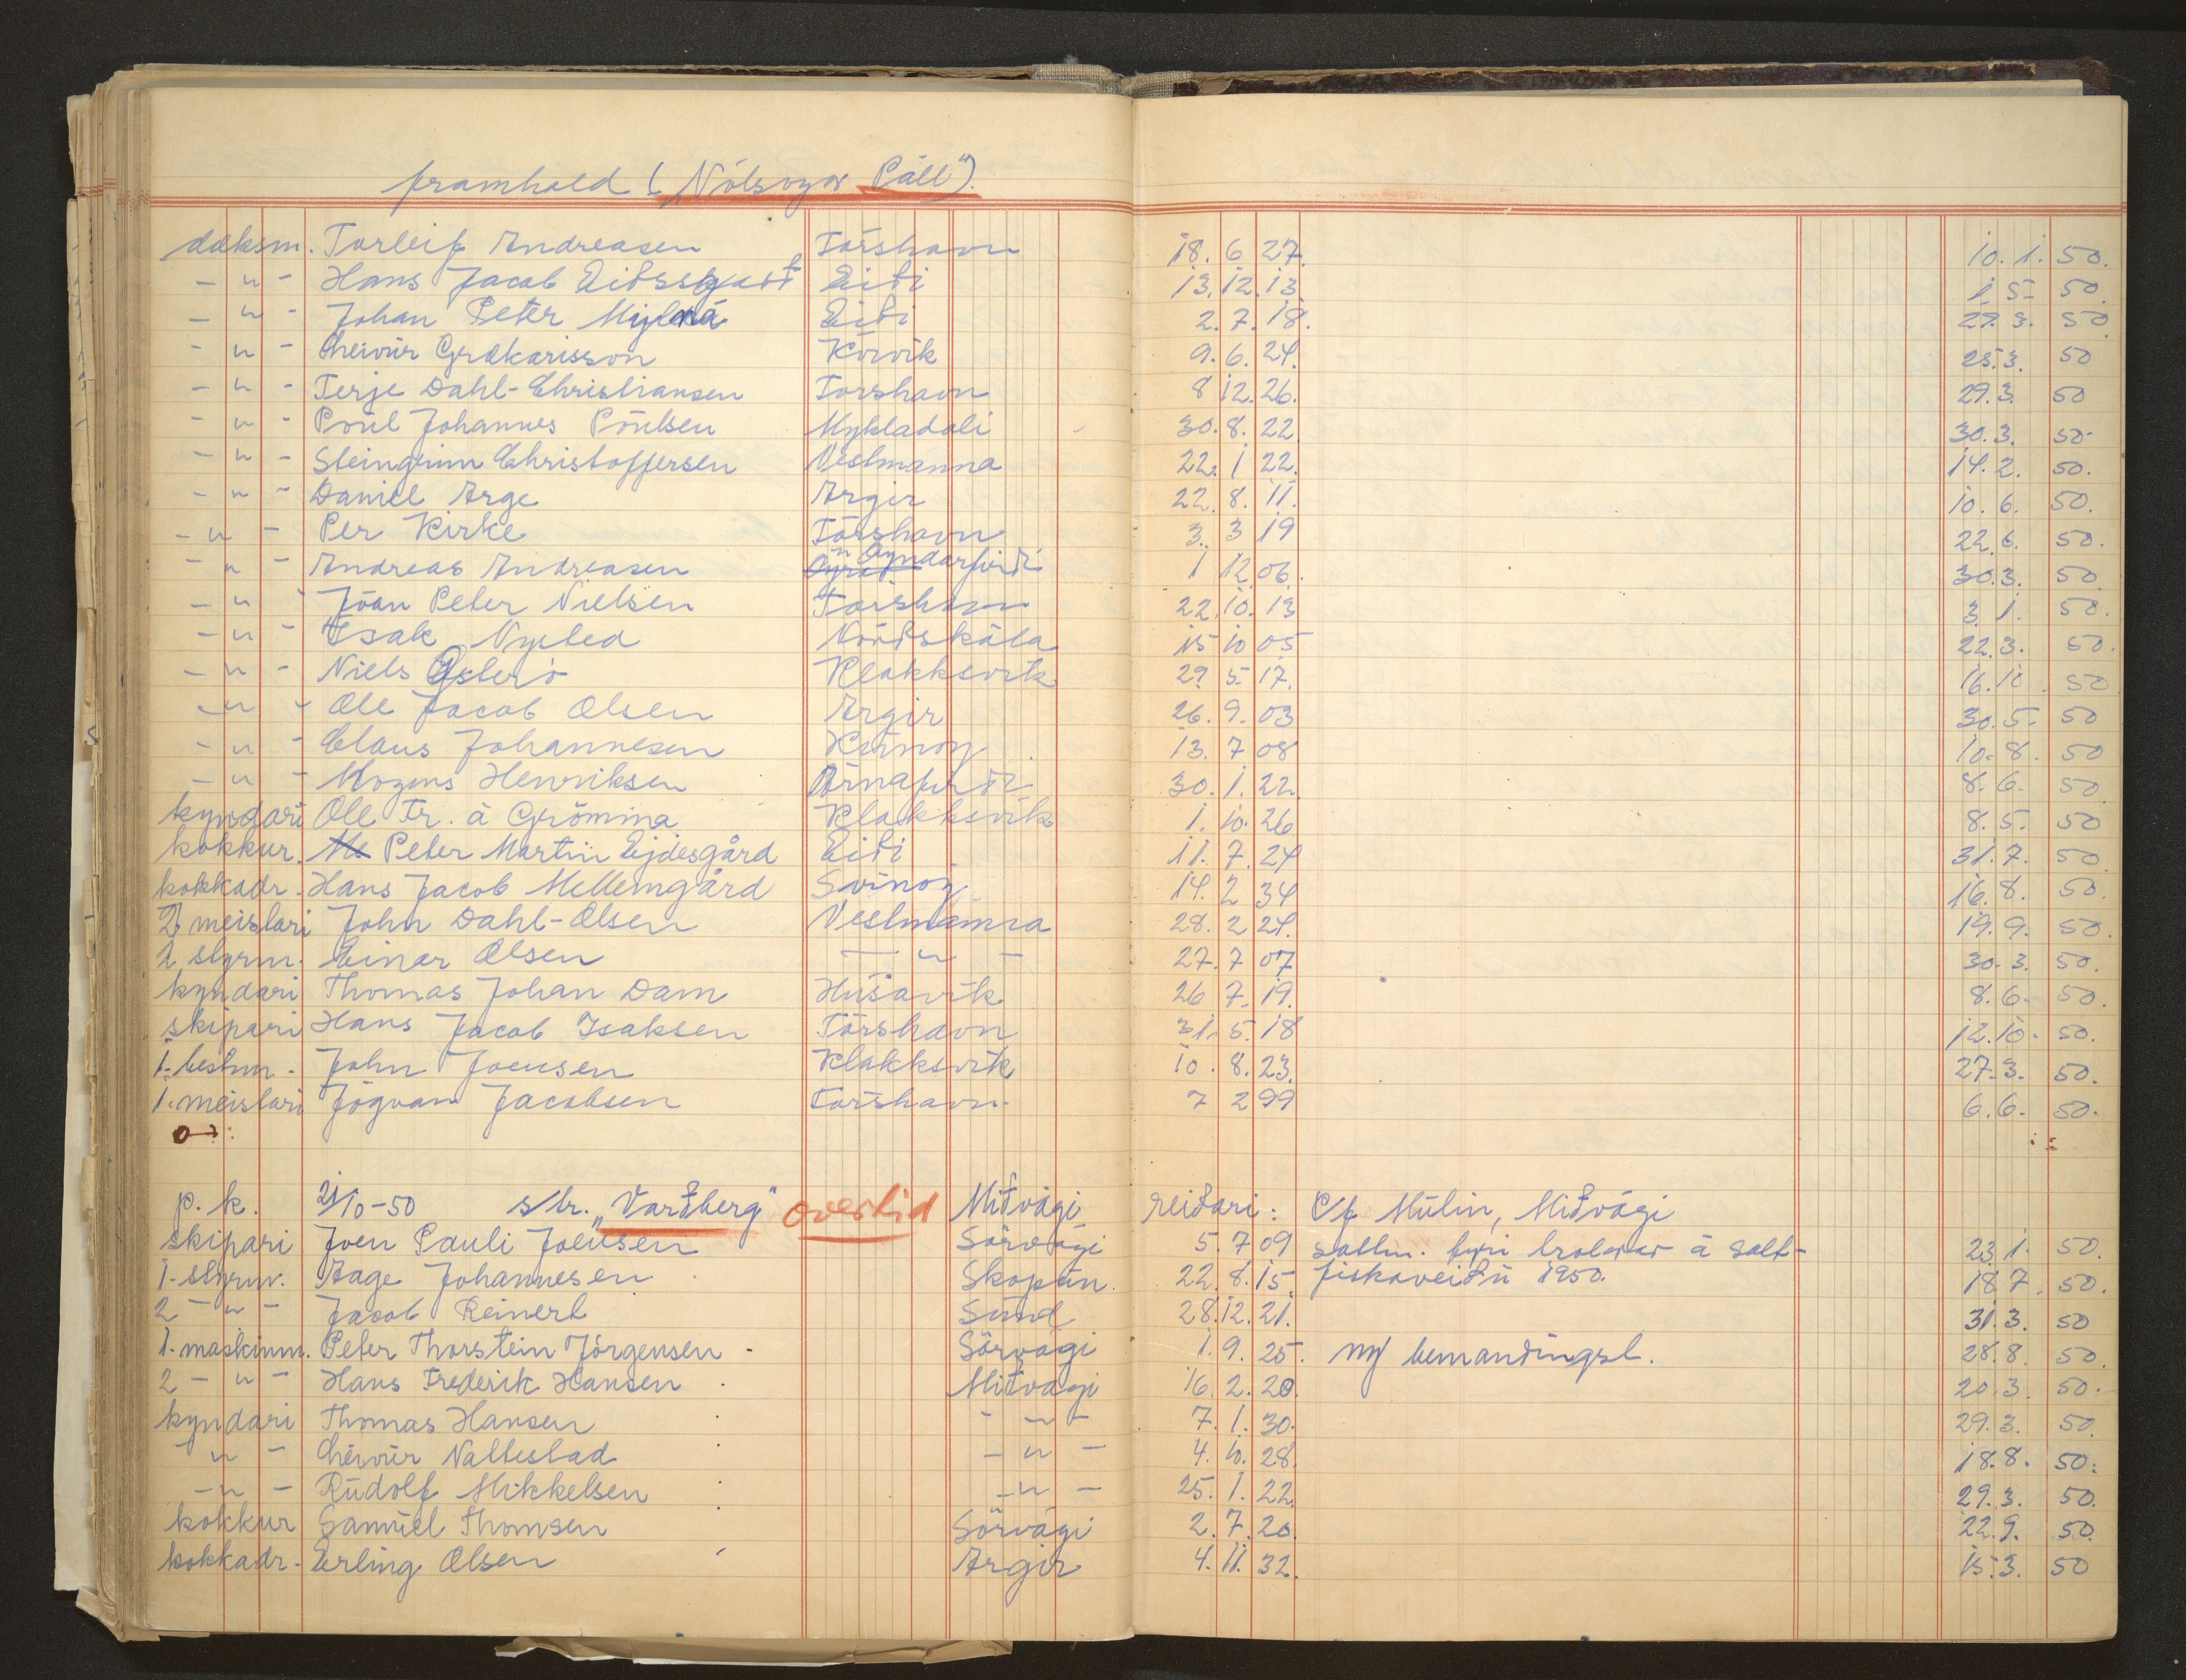 framhald („Nólsoyar Páll").
dæksm. Torleif Andreasen Tórshavn 18. 6 27. 10. 1. 50.
– " – Hans Jacob Eiðsgarð Eiði 13. 12. 13 1. 5. 50.
– " – Johan Peter Mylná Eiði 2. 7. 18. 27. 3. 50
– " – Heiður Grækarisson Kvívík 9. 6. 24. 25. 3. 50
– " – Terje Dahl-Christiansen Tórshavn 8 12. 26. 29. 3. 50
– " – Poul Johannes Poulsen Mykladali 30. 8. 22. 30. 3. 50
– " – Steingrim Christoffersen Vestmanna 22. 1 22. 14. 2. 50.
– " – Daniel Arge Argir 22. 8. 11. 10. 6. 50.
– " – Per Kirke Tórshavn 3. 3 19 22. 6. 50.
– " – Andreas Andreasen Oyndarfirði 1 12. 06. 30. 3. 50
– " – Jóan Peter Nielsen Tórshavn 22. 10. 13 3. 1. 50.
– " – Isak Nysted Norðskála 15 10 05 22. 3. 50.
– " – Niels Østerö Klakksvík 29 5 17. 16. 10. 50
– " – Ole Jacob Olsen Argir 26. 9. 03 30. 5. 50
– " – Claus Johannesen Kunoy 13. 7 08 10. 8. 50
– " – Mogens Henriksen Árnafirði 30. 1. 22. 8. 6. 50
kyndari Ole Fr. á Grömma Klakksvík 1. 10. 26 8. 5. 50
kokkur. Peter Martin Ejdesgård Eiði 11. 7. 24 31. 7. 50
kokkadr. Hans Jacob Mellemgård Svínoy 14. 2 34 16. 8. 50.
2 meistari John Dahl-Olsen Vestmanna 28. 2 24. 19. 9. 50.
2 styrm. Einar Olsen – " – 27. 7 07 30. 3. 50.
kyndari Thomas Johan Dam Húsavík 26 7. 19. 8. 6. 50.
skipari Hans Jacob Isaksen Tórshavn 31. 5. 18 12. 10. 50.
1. bestm. John Joensen Klakksvík 10. 8. 23. 27. 3. 50.
1. meistari Jógvan Jacobsen Tórshavn 7 2 99 6. 6. 50.
p. k. 21/10-50 s/tr. „Varðberg" overlid Miðvági reiðari: P/f Múlin, Miðvági
skipari Joen Pauli Joensen Sörvági 5. 7 09 sattm. fyri trolarar á salt- 23. 1. 50.
1. styrm. Aage Johannesen Skopun. 22. 8. 15. fiskaveiðu 1950. 18. 7. 50.
2 – " – Jacob Reinert Sund 28. 12. 21. 31. 3. 50
1. maskinm. Peter Thorstein Jörgensen Sörvági 1. 9. 25. mf bemandingsl. 28. 8. 50.
2 – " – Hans Frederik Hansen Miðvági 16. 2. 20. 20. 3. 50.
kyndari Thomas Hansen – " – 7. 1. 30. 29. 3. 50.
– " – Heiður Nattestad – " – 4. 10. 28. 18. 8. 50.
– " – Rudolf Mikkelsen – " – 25. 1. 22. 29. 3. 50.
kokkur Samuel Thomsen Sörvági 2. 7. 20. 22. 9. 50.
kokkadr. Erling Olsen Argir 4. 11. 32. 15. 3. 50